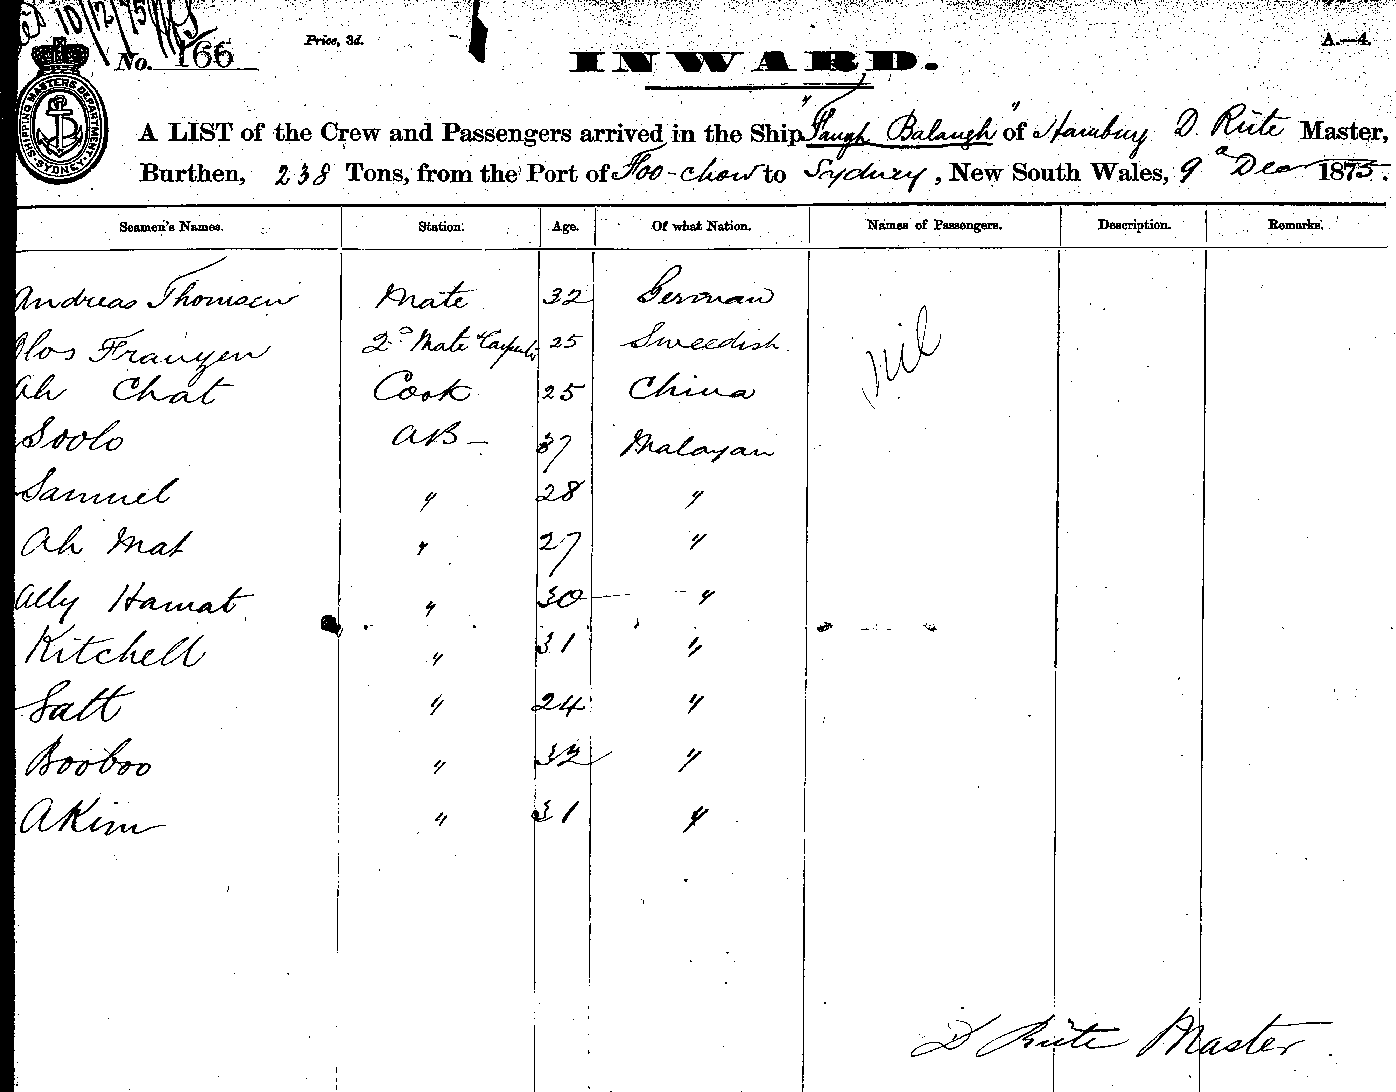 10/12/75
No. 166 Price, 3d. INWARD. A.—4.
SHIPPING MASTERS DEPARTMENT SYDNEY
A LIST of the Crew and Passengers arrived in the Ship "Faugh Balaugh" of Hamburg D. Rüte Master,
Burthen, 238 Tons, from the Port of Foo-chow to Sydney, New South Wales, 9 Dec 1875.
Seamen's Names. Station. Age. Of what Nation. Names of Passengers. Description. Remarks.
Andreas Thomsen Mate 32 German
Olos Franzen 2d Mate & Carpentr 25 Sweedish nil
Ah Chat Cook 25 China
Soolo AB - 37 Malayan
Samuel " 28 "
Ah Mat " 27 "
Ally Hamat " 30 "
Kitchell " 31 "
Satt " 24 "
Booboo " 32 "
AKim " 31 "
D Rüte Master